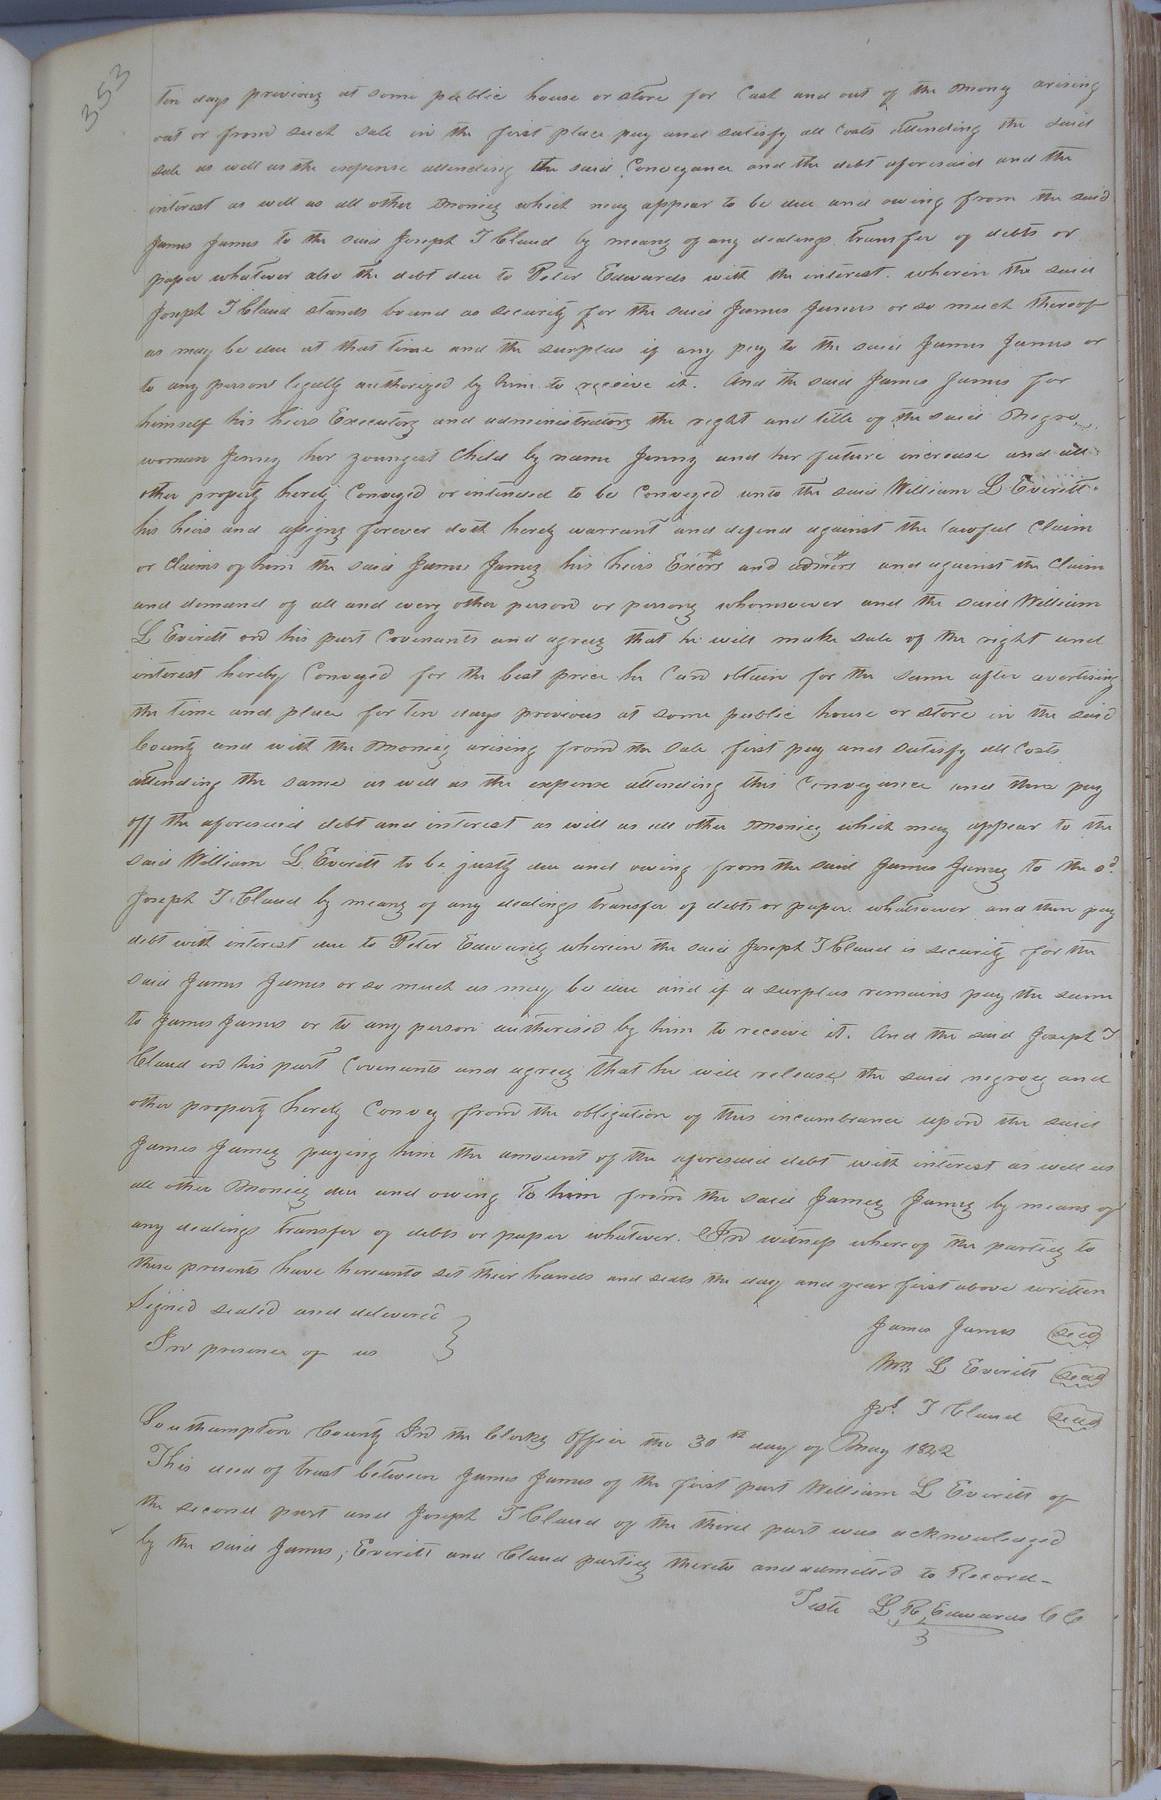 353
ten days previous at some public house or store for Cash and out of the money arising
out or from such sale in the first place pay and satisfy all Costs attending the said
sale as well as the expense attending the said Conveyance and the debt aforesaid and the
interest as well as all other monies which may appear to be due and owing from the said
James James to the said Joseph T Claud by means of any dealings transfer of debts or
paper whatever also the debt due to Peter Edwards with the interest. wherein the said
Joseph T Claud stands bound as security for the said James James or so much thereof
as may be due at that time and the surplus if any pay to the said James James or
to any person legally authorized by him to receive it. And the said James James for
himself his heirs Executors and administrators the right and title of the said Negro
woman Jenny her youngest Child by name Jenny and her future increase and all
other property hereby Conveyed or intended to be Conveyed unto the said William L Everitt
his heirs and assigns forever doth hereby warrant and defend against the lawful Claim
or Claims of him the said James James his heirs Exors and admors and against the Claim
and demand of all and every other person or persons whomsoever and the said William
L Everitt on his part Covenants and agrees that he will make sale of the right and
interest hereby Conveyed for the best price he Can obtain for the same after avertising
the time and place for ten days previous at some public house or store in the said
County and with the monies arising from the sale first pay and satisfy all Costs
attending the same as well as the expense attending this Conveyance and then pay
off the aforesaid debt and interest as well as all other monies which may appear to the
said William L Everitt to be justly due and owing from the said James James to the sd.
Joseph T Claud by means of any dealings transfer of debts or paper whatsoever and then pay
debt with interest due to Peter Edwards wherein the said Joseph T Claud is security for the
said James James or so much as may be due and if a surplus remains pay the same
to James James or to any person authorised by him to receive it. And the said Joseph T
Claud on his part Covenants and agrees that he will release the said negroes and
other property hereby Convey from the obligation of this incumbrance upon the said
James James paying him the amount of the aforesaid debt with interest as well as
all other monies due and owing To him from the said James James by means of
any dealings transfer of debts or paper whatever. In witness whereof the parties to
these presents have hereunto set their hands and seals the day and year first above written
Signed sealed and delivered }
In presence of us
James James seal
Wm L Everitt seal
Jos. T Claud seal
Southampton County In the Clerks Office the 30th day of May 1842
This deed of trust between James James of the first part William L Everitt of
the second part and Joseph T Claud of the third part was acknowledged
by the said James, Everitt and Claud parties thereto and admitted to Record-
Teste L R Edwards CC